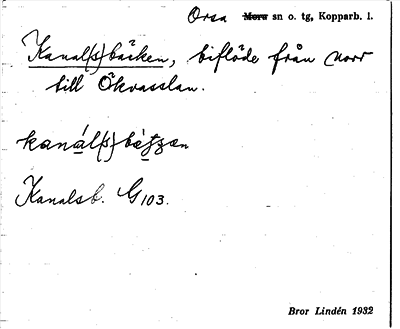 Orsa Mora sn o. tg, Kopparb. l.
Kanal(s)bäcken, biflöde från norr
till Ökvasslan.
kanál(s)bä̀tʃæn
Kanalsb. G103.
Bror Lindén 1932